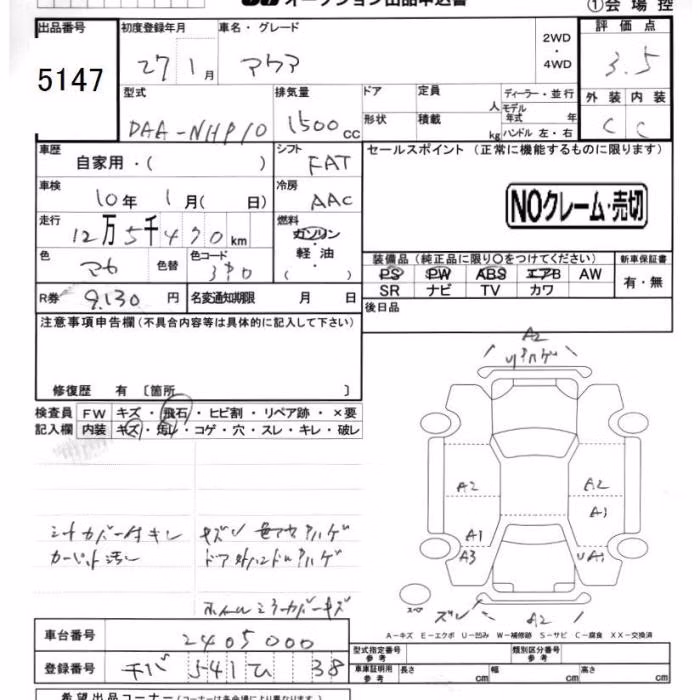 オークション出品申込書
①会場控
出品番号
5147
初度登録年月
27 1月
車名・グレード
アクア
2WD
・
4WD
評価点
3.5
型式
DAA-NHP10
排気量
1500cc
ドア
定員
人
形状
積載
kg
ディーラー・並行
モデル年式 年
ハンドル 左・右
外装 内装
C C
車歴
自家用・( )
シフト
FAT
セールスポイント (正常に機能するものに限ります)
車検
10年 1月( 日)
冷房
AAC
NOクレーム・売切
走行
12万5千470km
燃料
ガソリン
・
軽油
( )
色
色替
色コード
装備品 (純正品に限り○をつけてください)
新車保証書
PS PW ABS エアB AW
SR ナビ TV カワ
有・無
R券
9,130円
名変通知期限 月 日
後日品
注意事項申告欄 (不具合内容等は具体的に記入して下さい)
修復歴 有 〔箇所 〕
検査員
記入欄
FW キズ・飛石・ヒビ割・リペア跡・×要
内装 キズ・汚レ・コゲ・穴・スレ・キレ・破レ
A2
A2
A2
A1
A1
A3
UA1
A2
A-キズ E-エクボ U-凹み W-補修跡 S-サビ C-腐食 XX-交換済
車台番号
2405000
登録番号
チバ 541 ひ 38
型式指定番号
参考
類別区分番号
参考
車庫証明用
参考
長さ
幅
高さ
希望出品コーナー